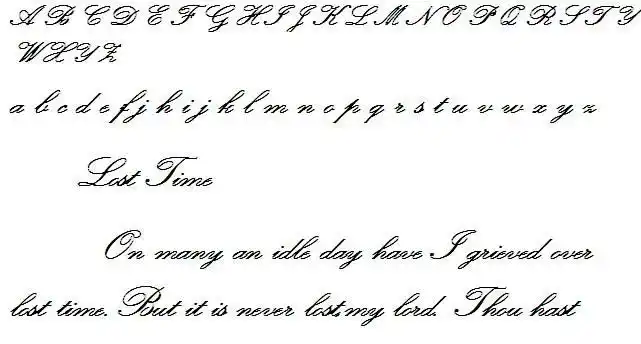 A B C D E F G H I J K L M N O P Q R S T Y
W X Y Z
a b c d e f j h i j k l m n o p q r s t u v w x y z
Lost Time
On many an idle day have I grieved over
lost time. But it is never lost,my lord. Thou hast